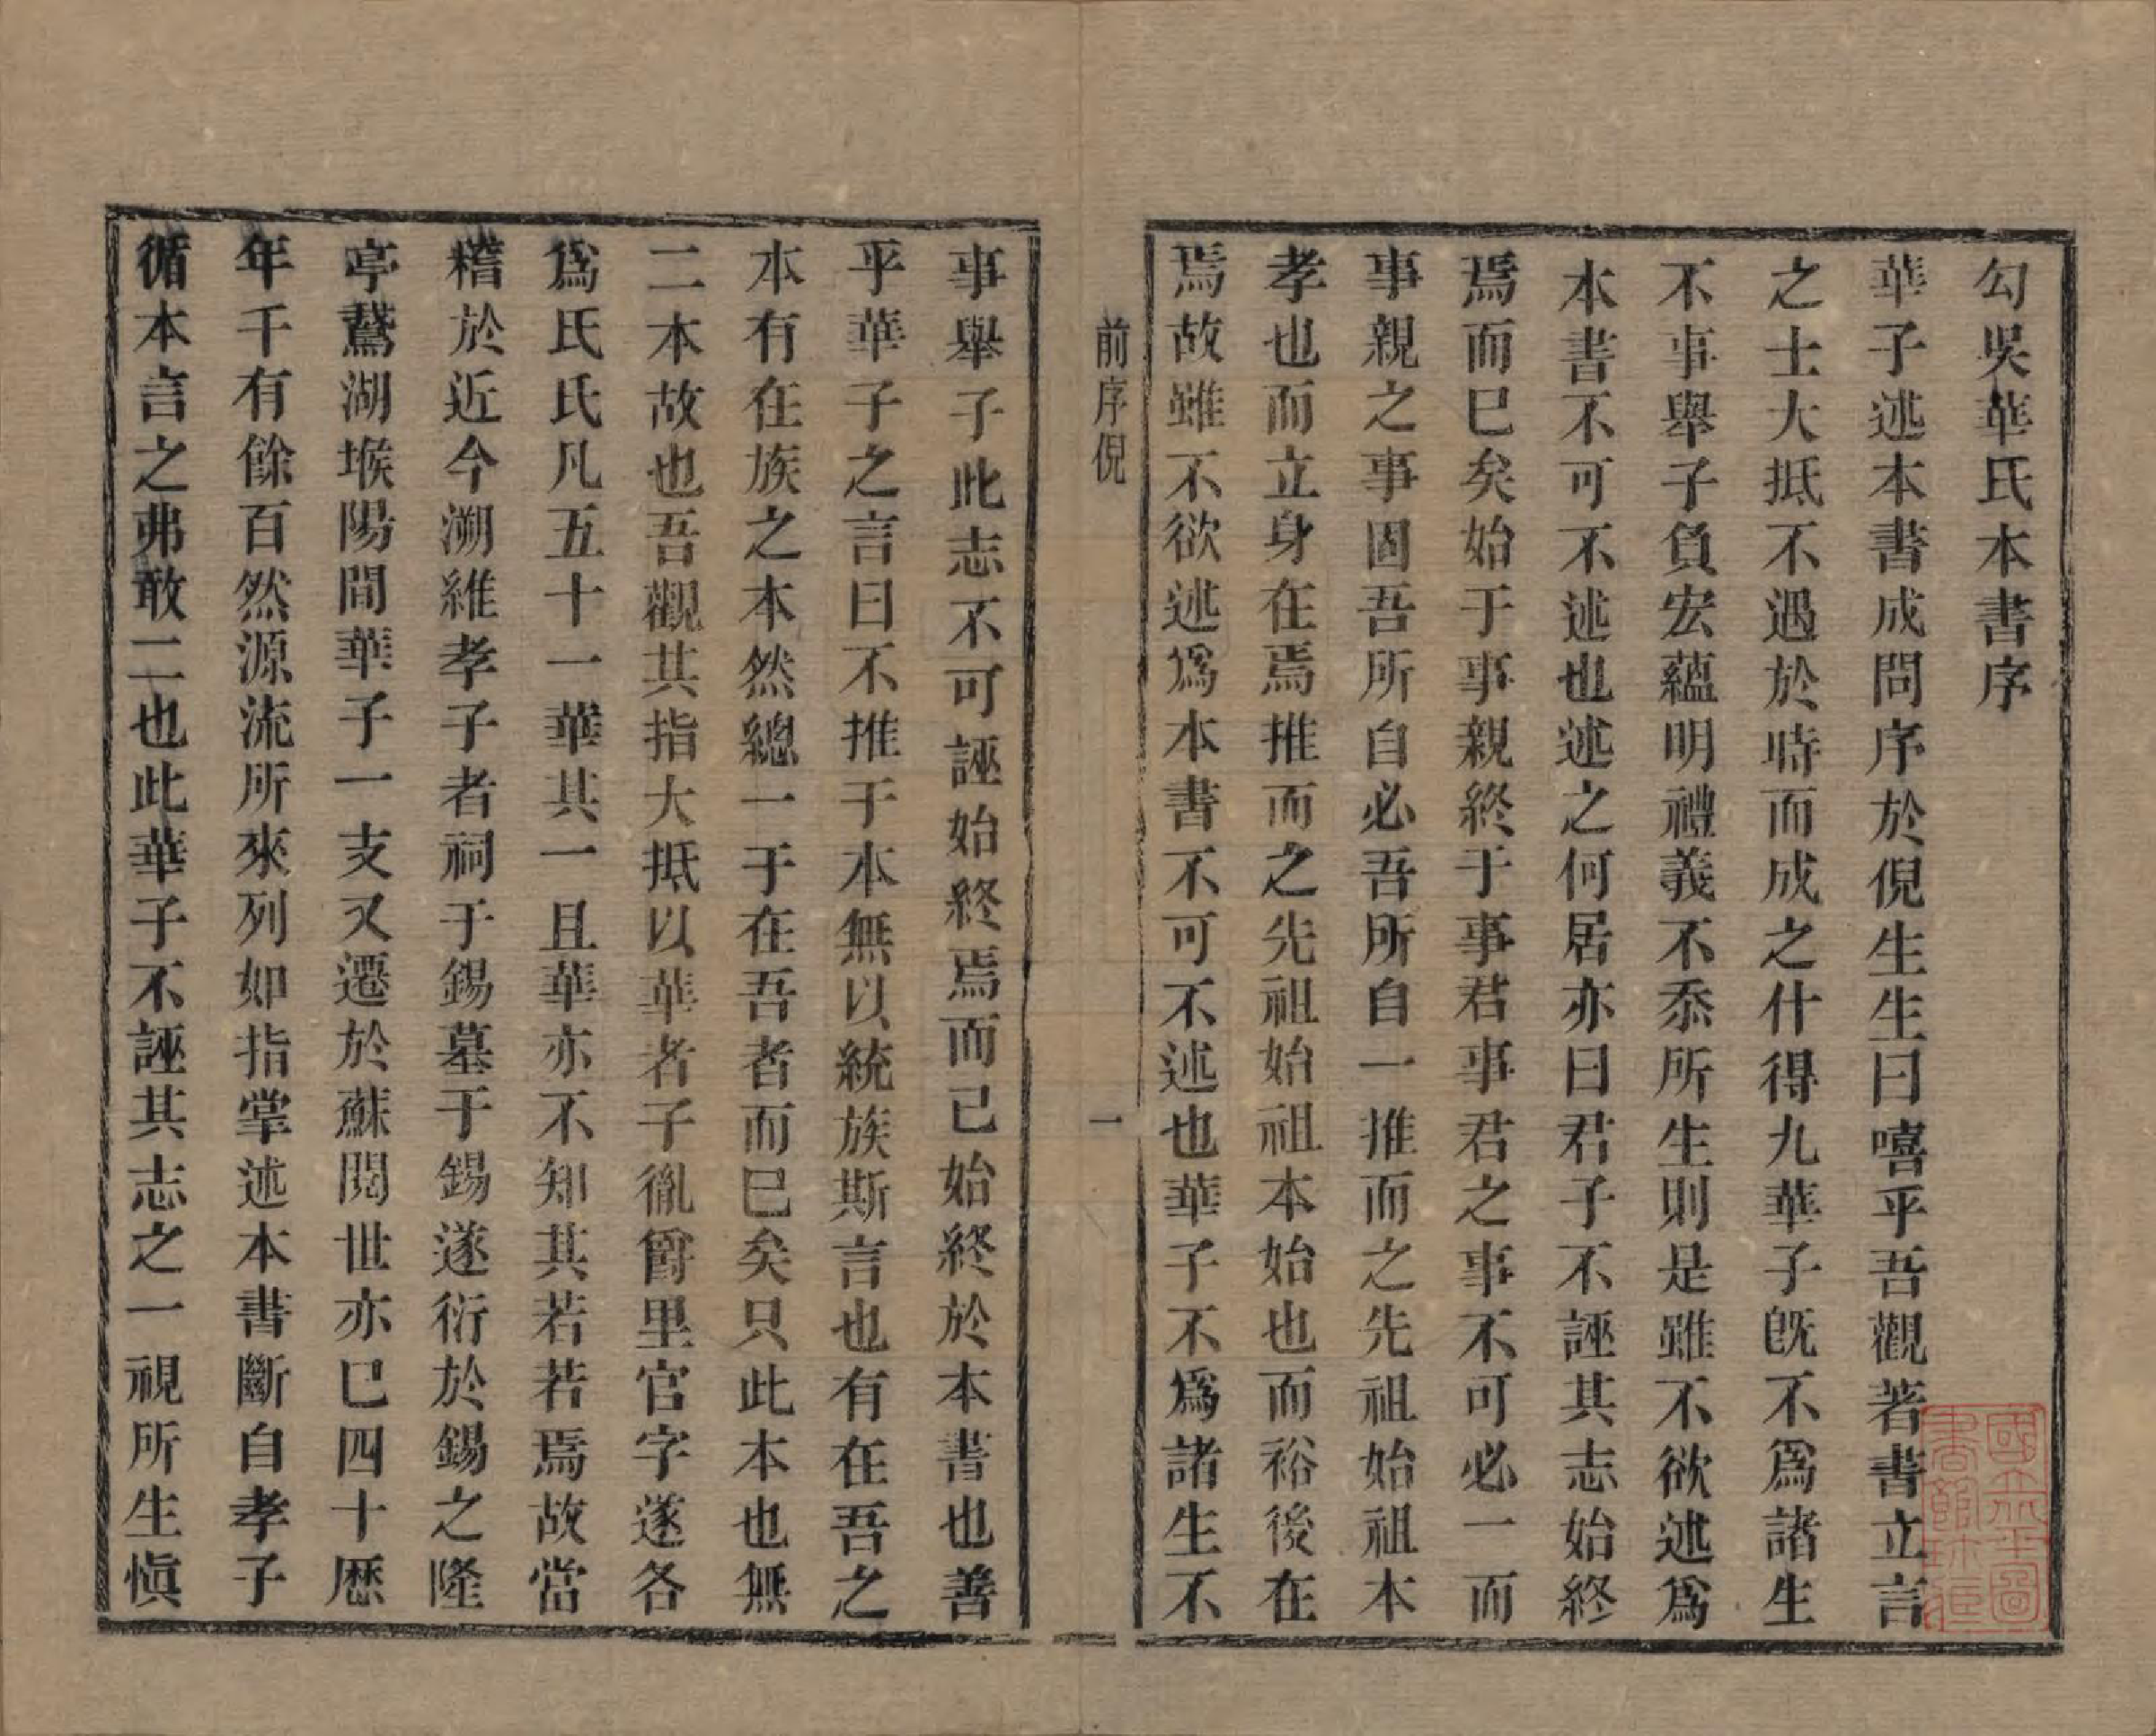 勾吳華氏本書序
華子述本書成問序於倪生生曰嘻乎吾觀著書立言
之士大抵不遇於時而成之什得九華子旣不爲諸生
不事舉子負宏蘊明禮義不忝所生則是雖不欲述爲
本書不可不述也述之何居亦曰君子不誣其志始終
焉而巳矣始于事親終于事君事君之事不可必一而
事親之事固吾所自必吾所自一推而之先祖始祖本
孝也而立身在焉推而之先祖始祖本始也而裕後在
焉故雖不欲述爲本書不可不述也華子不爲諸生不
前序倪
一
事舉子此志不可誣始終焉而已始終於本書也善
乎華子之言曰不推于本無以統族斯言也有在吾之
本有在族之本然總一于在吾者而巳矣只此本也無
二本故也吾觀其指大抵以華者子胤爵里官字遂各
爲氏氏凡五十一華其一且華亦不知其若若焉故當
稽於近今溯維孝子者祠于錫墓于錫遂衍於錫之隆
亭鵞湖堠陽間華子一支又遷於蘇閱世亦巳四十歷
年千有餘百然源流所來列如指掌述本書斷自孝子
循本言之弗敢二也此華子不誣其志之一視所生愼
國立北平圖書館珍藏